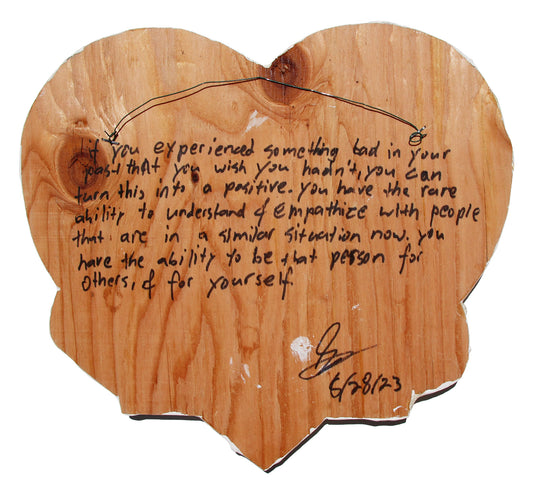 if you experienced something bad in your
past that you wish you hadn't, you can
turn this into a positive. you have the rare
ability to understand & empathize with people
that are in a similar situation now. you
have the ability to be that person for
others, & for yourself.
6/28/23